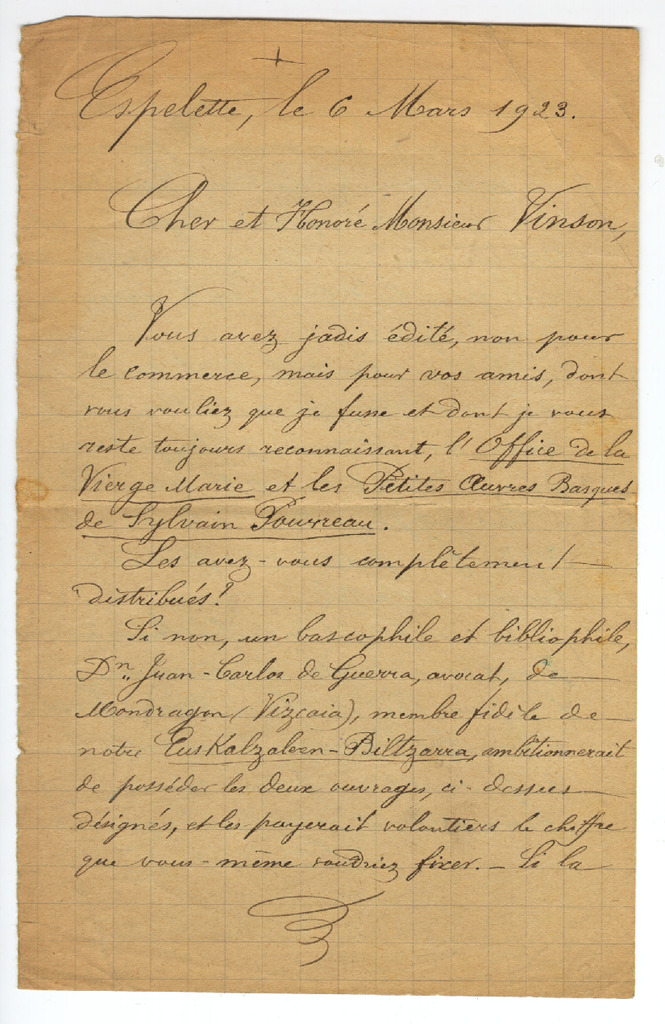 +
Espelette, le 6 Mars 1923.
Cher et Honoré Monsieur Vinson,
Vous avez jadis édité, non pour
le commerce, mais pour vos amis, dont
vous vouliez que je fusse et dont je vous
reste toujours reconnaissant, l'Office de la
Vierge Marie et les Petites Œuvres Basques
de Sylvain Pouvreau.
Les avez-vous complètement
distribués?
Si non, un bascophile et bibliophile,
Dn. Juan-Carlos de Guerra, avocat, de
Mondragon (Vizcaia), membre fidèle de
notre Euskalzaleen-Biltzarra, ambitionnerait
de posséder les deux ouvrages, ci-dessus
désignés, et les payerait volontiers le chiffre
que vous-même voudriez fixer. — Si la